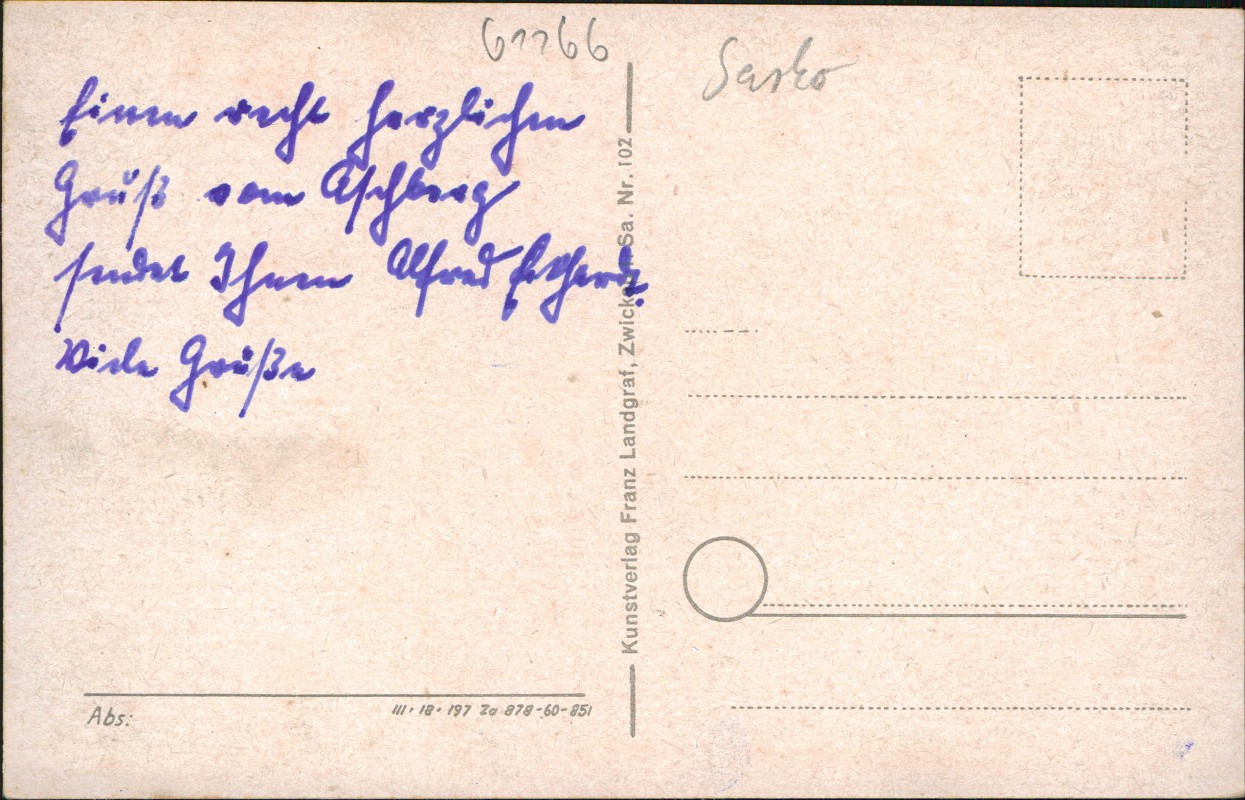 61766
Einen recht herzlichen
Gruß vom Aschberg
sendet Ihnen Alfred Eckhardt.
Viele Grüße
Sasko
Kunstverlag Franz Landgraf, Zwickau Sa. Nr. 102
Abs:
III·18·197 Za 878-60-851